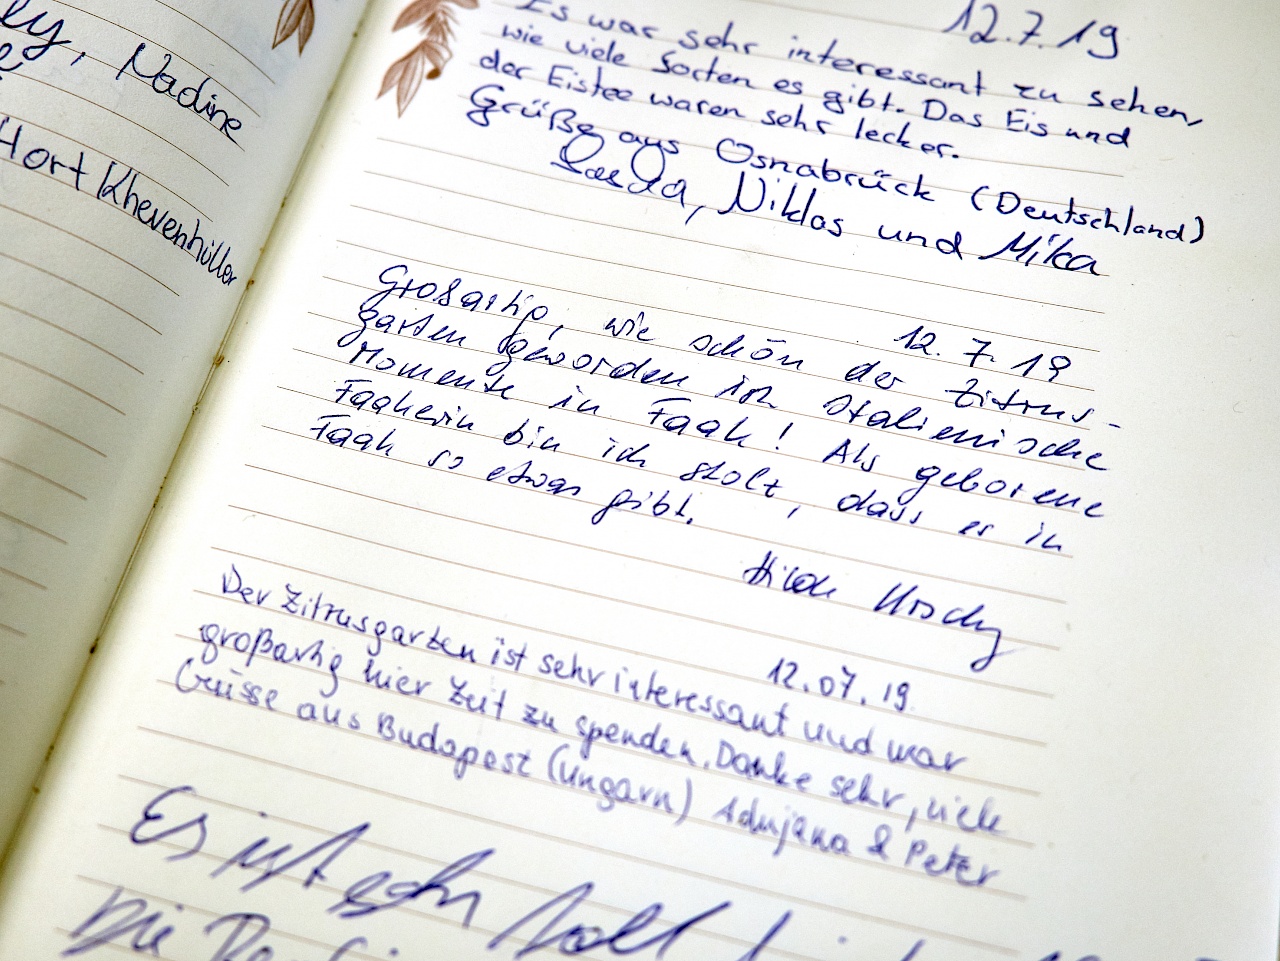 Nadine
Hort Khevenhüller
12.7.19
Es war sehr interessant zu sehen,
wie viele Sorten es gibt. Das Eis und
der Eistee waren sehr lecker.
Grüße aus Osnabrück (Deutschland)
Niklas und Mika
12.7.19
Großartig, wie schön der Zitrus-
garten geworden ist Italienische
Momente in Faak! Als geborene
Faakerin bin ich stolz, dass es in
Faak so etwas gibt.
12.07.19
Der Zitrusgarten ist sehr interessant und war
großartig hier Zeit zu spenden. Danke sehr, viele
Grüsse aus Budapest (Ungarn) & Peter
Es ist sehr toll
Die